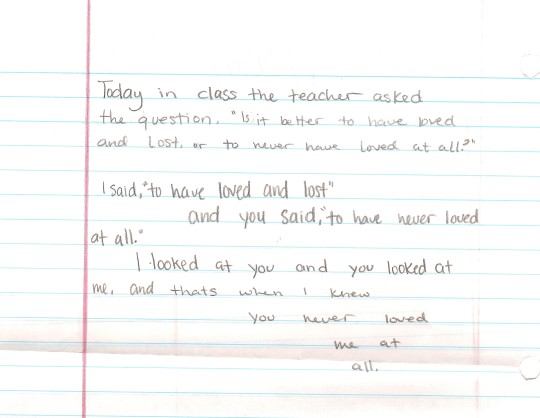 Today in class the teacher asked
the question, "Is it better to have loved
and Lost, or to never have Loved at all?"
I said, "to have loved and lost"
and you said, "to have never loved
at all."
I looked at you and you looked at
me, and thats when I knew
you never loved
me at
all.